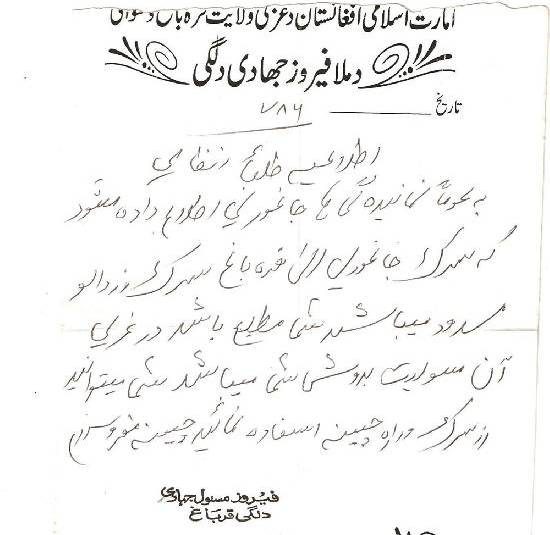 امارت اسلامی افغانستان د غزنی ولایت قره باغ دعوای
د ملا فیروز جهادی دلگی
تاریخ
۷۸۶
اطلاعیه طلبای نظامی
به عموم نمایندگی ها جاغوری اطلاع داده میشود
که سرک جاغوری الی قره باغ سرک زردالو
مسدود میباشد شما مطلع باشد در غیر
آن مسولیت بدوش شما میباشد شما میتوانید
از سرک و راه چینه استفاده نمائید چینه
فیروز مسئول جهادی
دلگی قرباغ